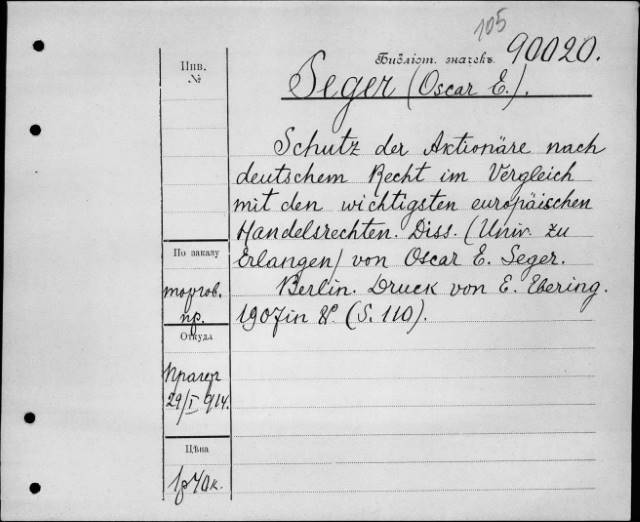 105
Библіот. значекъ 90020.
Инв.
№
Seger (Oscar E.).
Schutz der Aktionäre nach
deutschem Recht im Vergleich
mit den wichtigsten europäischen
Handelsrechten. Diss. (Univ. zu
Erlangen) von Oscar E. Seger.
Berlin. Druck von E. Ebering.
1907 in 8º. (S. 110).
По заказу
торгов.
пр.
Откуда
Прагер
29/I 914.
Цѣна
1р40к.